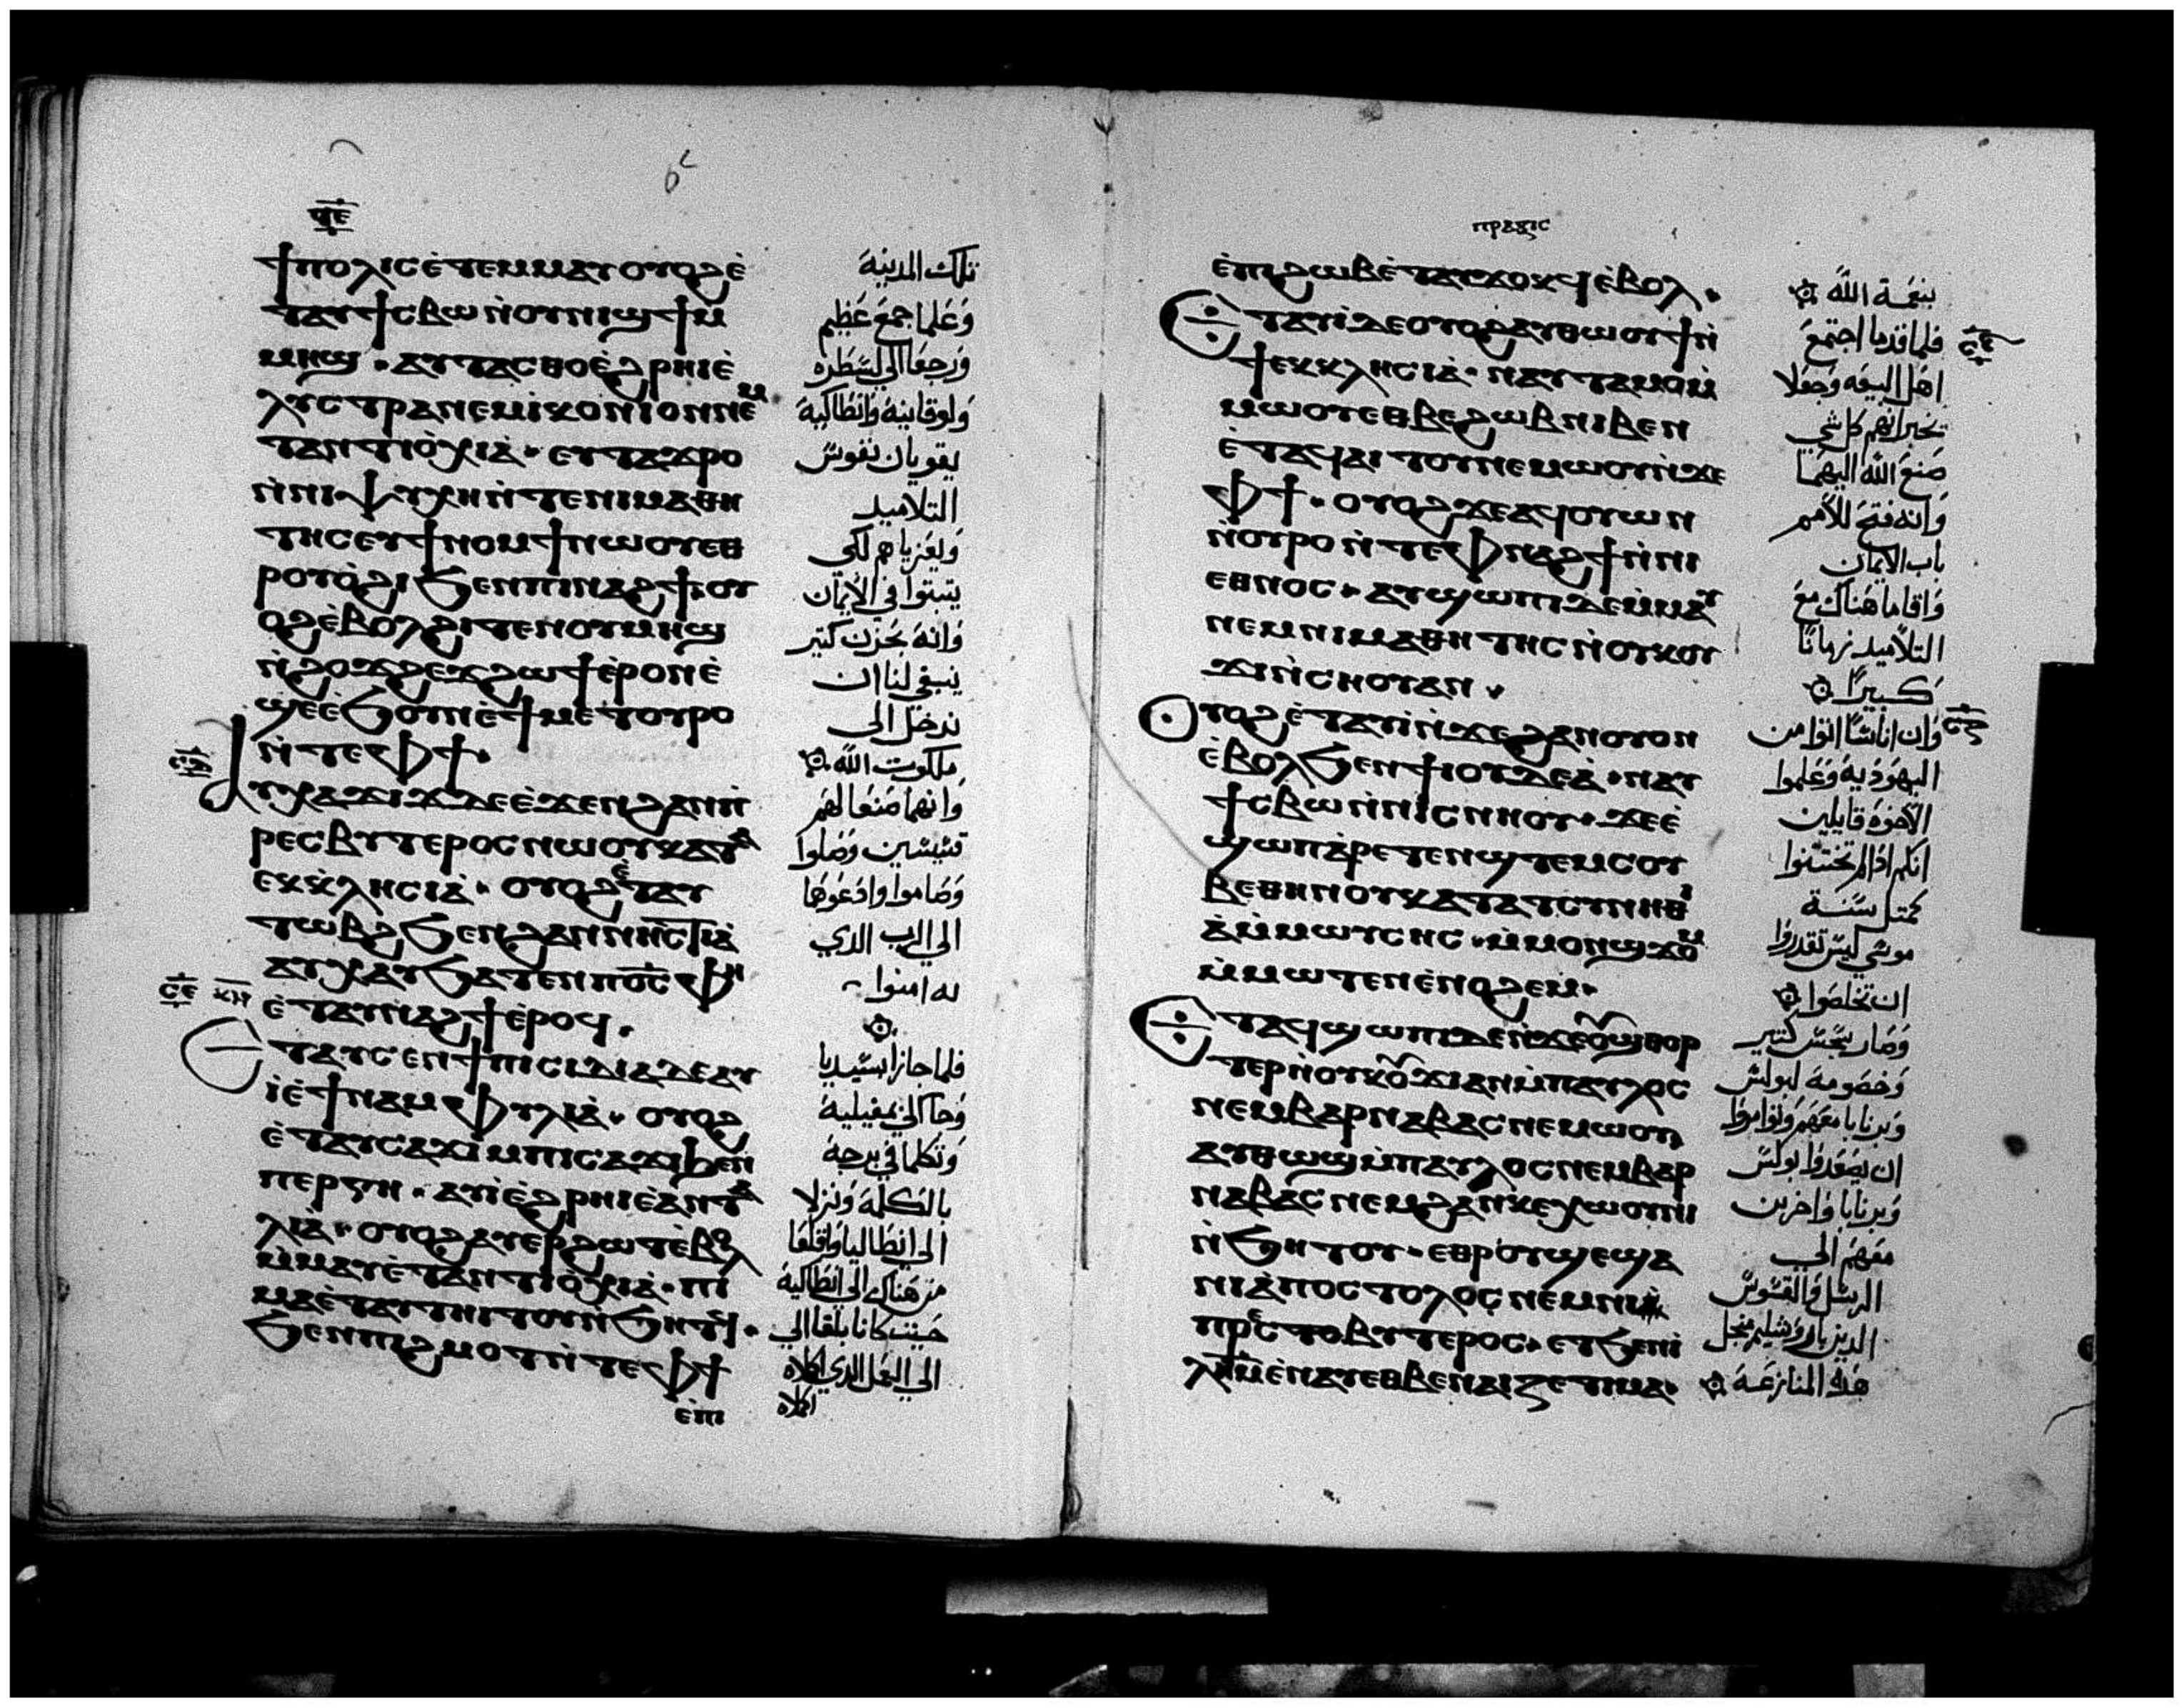 ϥⲉ
ϯⲡⲟⲗⲓⲥ ⲉⲧⲉⲙⲙⲁⲩ ⲟⲩⲟϩ ⲉ̀
ⲧⲁⲩϯⲥⲃⲱ ⲛ̀ⲟⲩⲛⲓϣϯ ⲙ
ⲙⲏϣ · ⲁⲩⲧⲁⲥⲑⲟ ⲉ̀ϩⲣⲏⲓ ⲉ̀
ⲗⲩⲥⲧⲣⲁ ⲛⲉⲙ ⲓⲕⲟⲛⲓⲟⲛ ⲛⲉⲙ
ⲧⲁⲛⲧⲓⲟ̀ⲭⲓⲁ̀ · ⲉⲩⲧⲁϫⲣⲟ
ⲛ̀ⲛⲓⲯⲩⲭⲏ ⲛ̀ⲧⲉ ⲛⲓⲙⲁⲑⲏ
ⲧⲏⲥ ⲉⲩϯⲛⲟⲙϯ ⲛⲱⲟⲩ ⲉⲑ
ⲣⲟⲩⲟ̀ϩⲓ ϧⲉⲛ ⲡⲓⲛⲁϩϯ ⲟⲩ
ⲟϩ ⲉ̀ⲃⲟⲗ ϩⲓⲧⲉⲛ ⲟⲩⲙⲏϣ
ⲛ̀ϩⲟϫϩⲉϫ ϩⲱϯ ⲉ̀ⲣⲟⲛ ⲉ̀
ϣⲉ ⲉ̀ϧⲟⲩⲛ ⲉ̀ϯⲙⲉⲧⲟⲩⲣⲟ
ⲛ̀ⲧⲉ ⲫϯ ·
ⲁⲩⲭⲁϫⲓϫ ⲇⲉ ⲉ̀ϫⲉⲛ ϩⲁⲛⲡ̀
ⲣⲉⲥⲃⲩⲧⲉⲣⲟⲥ ⲛⲱⲟⲩ ⲕⲁⲧⲁ
ⲉⲕⲕ̀ⲗⲏⲥⲓⲁ̀ · ⲟⲩⲟϩ ⲉ̀ⲧⲁⲩ
ⲧⲱⲃϩ ϧⲉⲛ ϩⲁⲛⲛⲏⲥⲧⲓⲁ̀
ⲁⲩⲭⲁⲩ ϧⲁⲧⲉⲛ ⲡⲟ̅ⲥ̅ ⲫⲏ
ⲥⲉ ⲕⲏ
ⲉ̀ⲧⲁⲩⲛⲁϩϯ ⲉ̀ⲣⲟϥ .
ⲉⲧⲁⲩⲥⲉⲛ ϯⲡⲓⲥⲓⲇⲓⲁ ⲇⲉ ⲁⲩ
ⲓ̀ ⲉ̀ϯⲡⲁⲙⲫⲩⲗⲓⲁ̀ · ⲟⲩⲟϩ
ⲉ̀ⲧⲁⲩⲥⲁϫⲓ ⲙ̀ⲡⲓⲥⲁϫⲓ ϧⲉⲛ
ⲡⲉⲣⲅⲏ · ⲁⲩⲓ̀ ⲉ̀ϩⲣⲏⲓ ⲉ̀ⲁⲛⲧⲁ
ⲗⲓⲁ̀ · ⲟⲩⲟϩ ⲁⲩⲉⲣϩⲱⲧ ⲉ̀ⲃⲟⲗ
ⲙ̀ⲙⲁⲩ ⲉ̀ⲧⲁⲛⲧⲓⲟ̀ⲭⲓⲁ̀ · ⲡⲓ
ⲙⲁ ⲉ̀ⲧⲁⲩⲧⲏⲓⲧⲟⲩ ⲛ̀ϧⲏⲧϥ ·
ϧⲉⲛ ⲡⲓϩⲙⲟⲧ ⲛ̀ⲧⲉ ⲫϯ
ⲉ̀ⲡⲓ
تلك المدينة
وعلما جمع عظيم
ورجعا الى لسطره
ولوقانيه وانطاكية
يقويان نفوس
التلاميد
ويعزياهم لكى
يتبتوا في الايمان
وانه بحزن كتير
ينبغى لنا ان
ندخل الى
ملكوت الله
وانهما صنعا لهم
قسيسين وصلوا
وصاموا وادعوها
الى الرب الدي
به امنوا
فلما جازا بسيديا
وجا الى بمفيلية
وتكلما في برجة
بالكلمة ونزلا
الى انطاليا واقلعا
من هناك الى انطاكية
حيت كانا بلغا الى
الى العمل الدي اكملاه
اكملاه
ⲡⲣⲁⲝⲓⲥ
ⲉ̀ⲡⲓϩⲱⲃ ⲉ̀ⲧⲁⲩϫⲟⲕϥ ⲉ̀ⲃⲟⲗ .
ⲉⲧⲁⲩⲓ̀ ⲇⲉ ⲟⲩⲟϩ ⲁⲩⲑⲱⲟⲩϯ ⲛ̀
ϯⲉⲕⲕⲗⲏⲥⲓⲁ̀ · ⲛⲁⲩⲧⲁⲙⲟ ⲙ̀
ⲙⲱⲟⲩ ⲉⲑⲃⲉ ϩⲱⲃ ⲛⲓⲃⲉⲛ
ⲉ̀ⲧⲁϥⲁⲓⲧⲟⲩ ⲛⲉⲙⲱⲟⲩ ⲛ̀ϫⲉ
ⲫϯ · ⲟⲩⲟϩ ϫⲉ ⲁϥⲟⲩⲱⲛ
ⲛ̀ⲟⲩⲣⲟ ⲛ̀ⲧⲉ ⲫⲛⲁϩϯ ⲛ̀ⲛⲓ
ⲉⲑⲛⲟⲥ · ⲁⲩϣⲱⲡⲓ ⲇⲉ ⲙ̀ⲙⲁⲩ
ⲛⲉⲙ ⲛⲓⲙⲁⲑⲏⲧⲏⲥ ⲛ̀ⲟⲩⲕⲟⲩ
ϫⲓ ⲛ̀ⲥⲏⲟⲩ ⲁⲛ .
ⲟⲩⲟϩ ⲉ̀ⲧⲁⲩⲓ̀ ⲛ̀ϫⲉ ϩⲁⲛⲟⲩⲟⲛ
ⲉ̀ⲃⲟⲗ ϧⲉⲛ ϯⲓⲟⲩⲇⲉⲁ̀ · ⲛⲁⲩ
ϯⲥⲃⲱ ⲛ̀ⲛⲓⲥⲛⲏⲟⲩ · ϫⲉ ⲉ̀
ϣⲱⲡ ⲁ̀ⲣⲉⲧⲉⲛϣⲧⲉⲙⲥⲟⲩ
ⲃⲉⲑⲏⲛⲟⲩ ⲕⲁⲧⲁ ⲧⲥⲩⲛⲏⲑⲓ
ⲁ̀ ⲙ̀ⲙⲱⲩⲥⲏⲥ · ⲙ̀ⲙⲟⲛ ϣϫⲟⲙ
ⲙ̀ⲙⲱⲧⲉⲛ ⲉ̀ⲛⲟϩⲉⲙ ·
ⲉⲧⲁϥϣⲱⲡⲓ ⲇⲉ ⲛ̀ϫⲉ ⲟⲩϣⲑⲟⲣ
ⲧⲉⲣ ⲛ̀ⲟⲩⲕⲟⲩϫⲓ ⲁⲛ ⲙ̀ⲡⲁⲩⲗⲟⲥ
ⲛⲉⲙ ⲃⲁⲣⲛⲁⲃⲁⲥ ⲛⲉⲙⲱⲟⲩ
ⲁⲩⲑⲱϣ ⲙ̀ⲡⲁⲩⲗⲟⲥ ⲛⲉⲙ ⲃⲁⲣ
ⲛⲁⲃⲁⲥ ⲛⲉⲙ ϩⲁⲛⲕⲉⲭⲱⲟⲩⲛⲓ
ⲛ̀ϧⲏⲧⲟⲩ · ⲉⲑⲣⲟⲩϣⲉ ϣⲁ
ⲛⲓⲁ̀ⲡⲟⲥⲧⲟⲗⲟⲥ ⲛⲉⲙ ⲛⲓ
ⲡⲣⲉⲥⲃⲩⲧⲉⲣⲟⲥ · ⲉⲧϧⲉⲛ ⲓ
ⲗ̅ⲏ̅ⲙ̅ ⲉ̀ⲛⲁⲩ ⲉⲑⲃⲉ ⲛⲁⲓⲍⲉⲧⲏⲙⲁ ·
بنعمة الله
فلما قدما اجتمع
اهل البيعه وجعلا
يخبرانهم كل شي
صنع الله اليهما
وانه فتح للامم
باب الايمان
واقاما هناك مع
التلاميد زمانا
كبيرا
وان اناسا اتوا من
اليهودية وعلموا
الاخوة قايلين
انكم ادا لم تختتنوا
كمتل سنة
موسى ليس تقدروا
ان تخلصوا
وصار سجس كتير
وخصومة لبولس
وبرنابا معهم وتوامروا
ان يصعدوا بولس
وبرنابا واخرين
معهم الى
الرسل والقسوس
الدين باورشليم من اجل
هده المنازعة